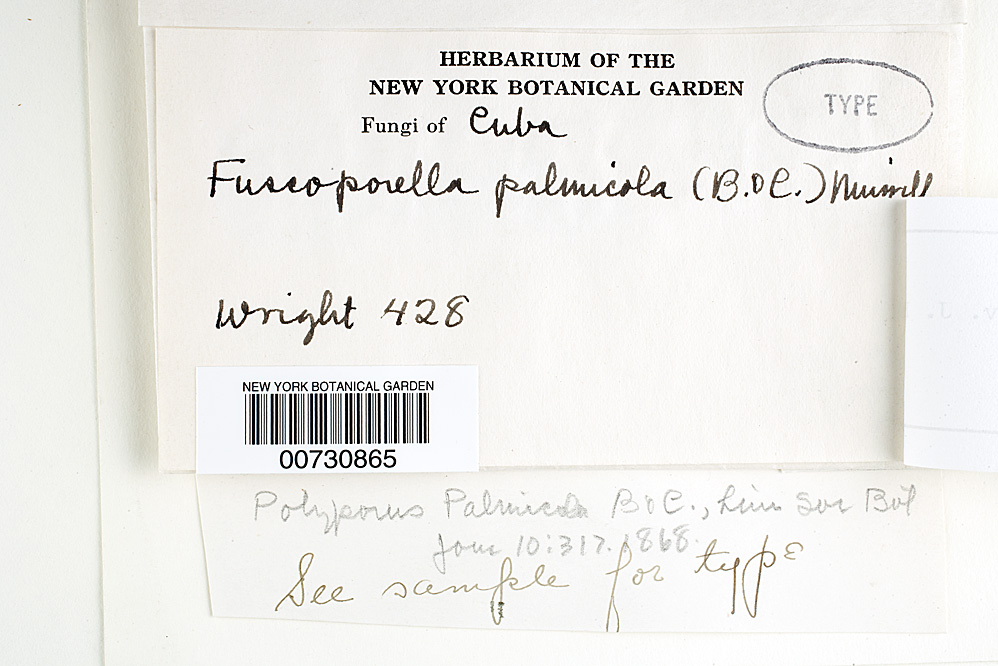 HERBARIUM OF THE
NEW YORK BOTANICAL GARDEN
TYPE
Fungi of Cuba
Fuscoporella palmicola (B. & C.) Murrill
Wright 428
NEW YORK BOTANICAL GARDEN
00730865
Polyporus Palmicola B & C., Linn Soc Bot
Jour 10:317. 1868.
See sample for type